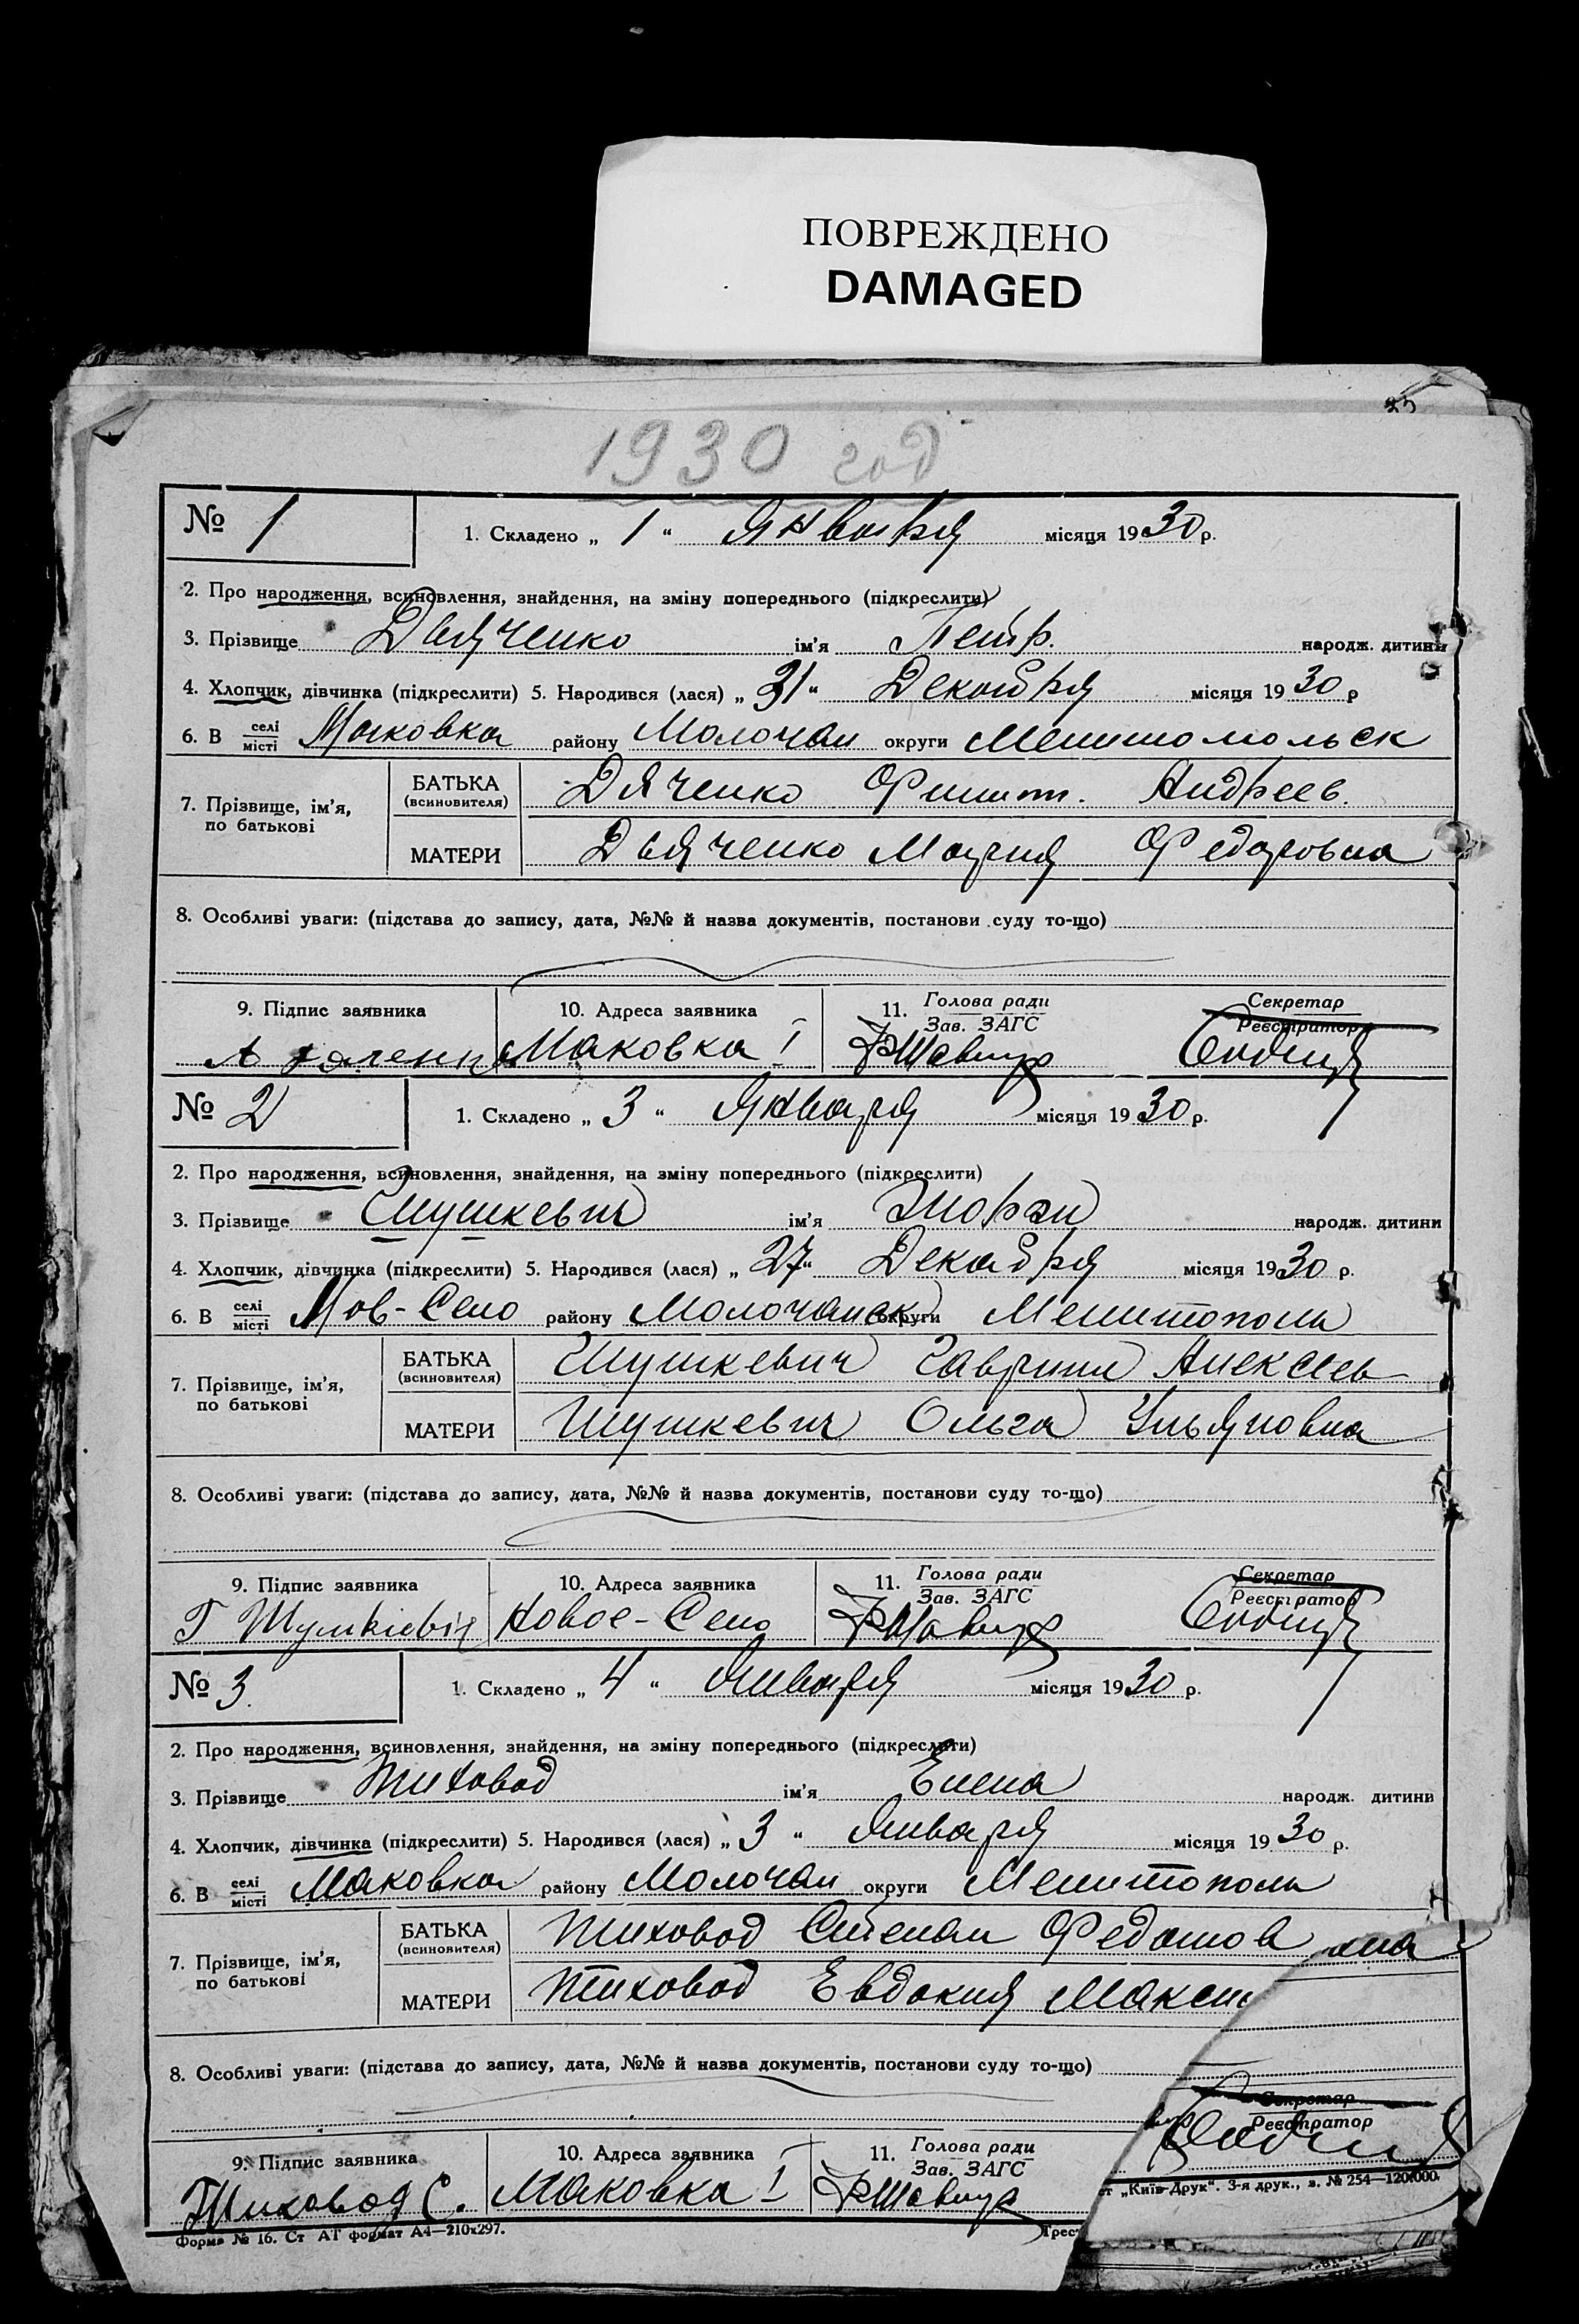 ПОВРЕЖДЕНО
DAMAGED
35
1930 год
№ 1
1. Складено „ 1 “ Января місяця 1930 р.
2. Про народження, всиновлення, знайдення, на зміну попереднього (підкреслити)
3. Прізвище Дьяченко ім'я Петр. народж. дитини
4. Хлопчик, дівчинка (підкреслити) 5. Народився (лася) „ 31 “ Декабря місяця 1930 р
6. В селі/місті Маковка району Молочан округи
7. Прізвище, ім'я, по батькові
БАТЬКА (всиновителя) Дяченко Филип. Андреев.
МАТЕРИ Дьяченко Мария Федоровна
8. Особливі уваги: (підстава до запису, дата, №№ й назва документів, постанови суду то-що)
9. Підпис заявника 10. Адреса заявника 11. Голова ради / Зав. ЗАГС Секретар / Реєстратор
Маковка I
№ 2
1. Складено „ 3 “ Января місяця 1930 р.
2. Про народження, всиновлення, знайдення, на зміну попереднього (підкреслити)
3. Прізвище Шушкевич ім'я народж. дитини
4. Хлопчик, дівчинка (підкреслити) 5. Народився (лася) „ 27 “ Декабря місяця 1930 р.
6. В селі/місті Нов-Село району Молочанск округи Мелитополь
7. Прізвище, ім'я, по батькові
БАТЬКА (всиновителя) Шушкевич Гаврил Алексеев
МАТЕРИ Шушкевич Ольга Ульяновна
8. Особливі уваги: (підстава до запису, дата, №№ й назва документів, постанови суду то-що)
9. Підпис заявника 10. Адреса заявника 11. Голова ради / Зав. ЗАГС Секретар / Реєстратор
Г Шушкієвіч Новое-Село
№ 3.
1. Складено „ 4 “ Января місяця 1930 р.
2. Про народження, всиновлення, знайдення, на зміну попереднього (підкреслити)
3. Прізвище Тиховод ім'я Елена народж. дитини
4. Хлопчик, дівчинка (підкреслити) 5. Народився (лася) „ 3 “ Января місяця 1930 р.
6. В селі/місті Маковка району Молочан округи Мелитополь
7. Прізвище, ім'я, по батькові
БАТЬКА (всиновителя) Тиховод Степан Федотов
МАТЕРИ Тиховод Евдокия Макси
8. Особливі уваги: (підстава до запису, дата, №№ й назва документів, постанови суду то-що)
9. Підпис заявника 10. Адреса заявника 11. Голова ради / Зав. ЗАГС Секретар / Реєстратор
Тиховод С. Маковка I
Форма № 16. Ст АТ формат А4—210х297. Трест „Київ-Друк“. 3-я друк., з. № 254—120.000.